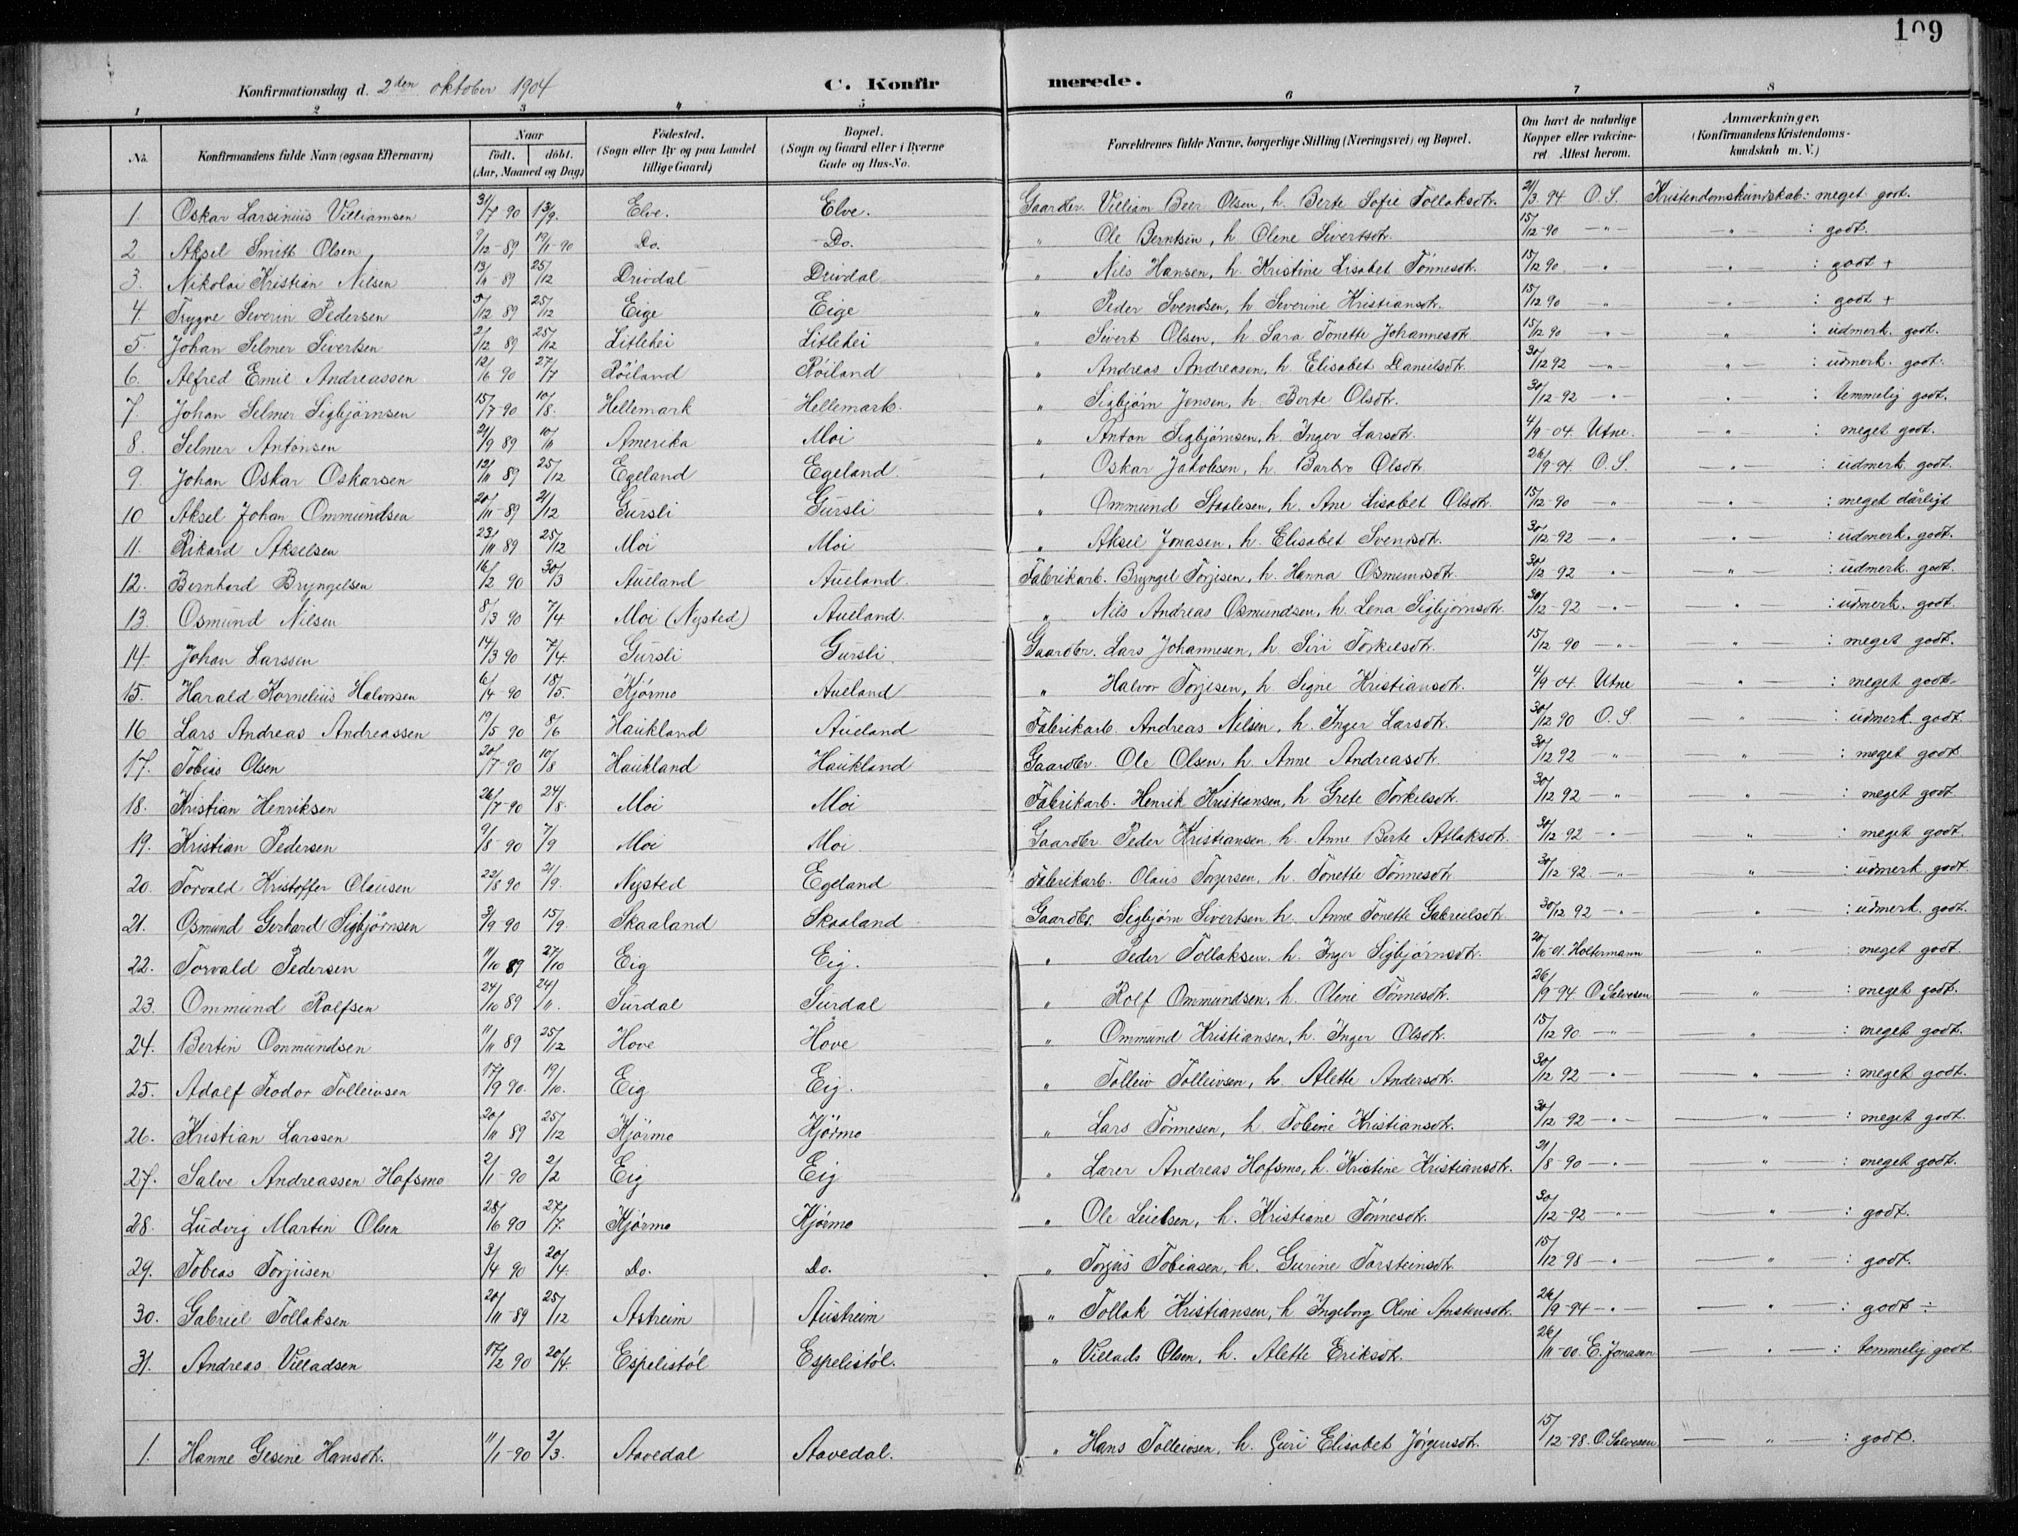 109
Konfirmationsdag d. 2den oktober 1904 C. Konfirmerede.
1 2 3 4 5 6 7 8
No. Konfirmandens fulde Navn (ogsaa Efternavn) Naar født. døbt. (Aar, Maaned og Dag) Fødested. (Sogn eller By og paa Landet tillige Gaard) Bopæl. (Sogn og Gaard eller i Byerne Gade og Hus-No. Forældrenes fulde Navne, borgerlige Stilling (Næringsvei) og Bopæl. Om havt de naturlige Kopper eller vakcineret. Attest herom. Anmærkninger. (Konfirmandens Kristendomskundskab m. V.)
1 Oskar Larsinius Villiamsen 3/7 90 13/9. Elve. Elve. Gaardbr. Villiam Beer Olsen, h. Berte Sofie Tollaksdtr. 21/3 94 O. S. Kristendomskundskab: meget godt.
2 Aksel Smitt Olsen 9/12-89 19/1-90 Do. Do. " Ole Berntsen, h. Olene Sivertsdtr. 15/12-90 -"- " : godt.
3. Nikolai Kristian Nilsen 13/11-89 25/12 Drivdal Drivdal " Nils Hansen, h. Kristine Lisabet Tønnesdtr. 15/12 90 " " : godt +
4 Trygve Severin Pedersen 5/12 89 25/12 Eige Eige " Peder Svendsen, h Severine Kristiansdtr. 15/12 90 -"- " : godt +
5. Johan Selmer Sivertsen 2/12 89 25/12 Litlehei Litlehei " Sivert Olsen, h. Sara Tonette Johannesdtr. 15/12 90 -"- " : udmerk. godt.
6. Alfred Emil Andreassen 12/6 90 27/7 Røiland Røiland " Andreas Andreasen, h. Elisabet Danielsdtr. 30/12 92 -"- " : udmerk. godt.
7. Johan Selmer Sigbjørnsen 15/7 90 10/8. Hellemark Hellemark. " Sigbjørn Jensen, h. Berte Olsdtr. 30/12-92 -"- " : temmelig godt.
8. Selmer Antonsen 21/9 89 10/11 Amerika Moi " Anton Sigbjørnsen, h. Inger Larsdtr. 4/9-04. Utne. " : meget godt.
9. Johan Oskar Oskarsen 12/11 89 25/12 Egeland Egeland " Oskar Jakobsen, h. Barbro Olsdtr. 26/9-94. O. S. " : udmerk. godt.
10 Aksel Johan Ommundsen 20/11-89 21/12 Gursli Gursli " Ommund Staalesen, h. Ane Lisabet Olsdtr. 15/12-90 " " : meget dårligt
11. Rikard Akselsen 23/11 89 25/12 Moi Moi " Aksel Jonasen, h. Elisabet Svendsdtr. 30/12-92 -"- " : udmerk. godt.
12. Bernhard Bryngelsen 16/2 90 30/3 Aueland Aueland. Fabrikarb. Bryngel Torjesen, h. Hanna Osmundsdtr. 30/12 92 -"- " : udmerk. godt.
13 Osmund Nilsen 8/3 90 7/4 Moi (Nysted) Aueland. " Nils Andreas Osmundsen, h. Lena Sigbjørnsdtr. 30/12-92 -"- " : udmerk. godt.
14. Johan Larssen 14/3 90 7/4. Gursli Gursli Gaardbr. Lars Johannesen, h. Siri Torkelsdtr. 15/12-90 -"- " : meget godt.
15. Harald Kornelius Halvorsen 6/4 90 18/5. Kjørmo Aueland " Halvor Torjesen, h. Signe Kristiansdtr. 4/9 04. Utne " : meget godt.
16. Lars Andreas Andreassen 19/5 90 8/6 Haukland Aueland Fabrikarb. Andreas Nilsen, h. Inger Larsdtr. 30/12 90 O. S " : udmerk. godt.
17. Tobias Olsen 20/7-90 10/8 Haukland Haukland Gaardbr. Ole Olsen, h. Anne Andreasdtr. 30/12 92 " " : meget godt.
18. Kristian Henriksen 26/7-90 24/8. Moi Moi Fabrikarb. Henrik Kristiansen, h Grete Torkelsdtr. 30/12 92 -" " : meget godt
19. Kristian Pedersen 9/8-90 7/9 Moi Moi Gaardbr Peder Kristiansen, h. Anne Berte Atlaksdtr. 30/12-92 -"- " : meget godt.
20. Torvald Kristoffer Olausen 22/8 90 21/9. Nysted Egeland Fabrikarb. Olaus Torgersen, h. Tonette Tønnesdtr 30/12-92 -"- " : udmerk. godt.
21. Osmund Gerhard Sigbjørnsen 3/9 90 15/9. Skaaland Skaaland Gaardbr. Sigbjørn Sivertsen h. Anne Tonette Gabrielsdtr. 30/12 92 -"- " : udmerk. godt.
22. Torvald Pedersen 11/10 89 27/10 Eig Eig. " Peder Tollaksen, h. Inger Sigbjørnsdtr. 20/10-01. Holtermann " : meget godt.
23. Ommund Rolfsen 24/10 89 24/11. Surdal Surdal " Rolf Ommundsen, h. Oline Tønnesdtr. 26/9-94 O. Salvesen " : meget godt.
24. Bertin Ommundsen 11/11 89 25/12 Hove Hove " Ommund Kristiansen, h. Inger Olsdtr. 15/12 90 -"- " : meget godt.
25. Adolf Teodor Tolleivsen 17/9 90. 19/10. Eig Eig. " Tolleiv Tolleivsen, h. Alette Andersdtr. 30/12 92 -"- " : meget godt.
26. Kristian Larssen 20/11 89 25/12 Kjørmo Kjørmo " Lars Tønnesen, h. Tobine Kristiansdtr. 30/12-92 -"- " : meget godt.
27. Salve Andreassen Hofsmo 2/1-90 2/2 Eig Eig " Lærer Andreas Hofsmo, h. Kristine Kristiansdtr. 31/8-90 -"- " : meget godt.
28. Ludvig Martin Olsen 28/6 90 27/7. Kjørmo Kjørmo " Ole Leielsen, h. Kristiane Tønnesdtr. 30/12-92 -"- " : godt.
29. Tobias Torjusen 3/4 90 20/4. Do. Do. " Torjus Tobiasen, h. Gurine Torsteinsdtr. 15/12-98 -"- " : godt.
30. Gabriel Tollaksen 20/11-89 25/12 Astreim Austreim " Tollak Kristiansen, h Ingeborg Oline Anstensdtr. 26/9-94 -"- " : godt ÷
31. Andreas Villadsen 17/2 90 20/4. Espelistøl Espelistøl. " Villads Olsen, h. Alette Eriksdtr. 26/11-00. E. Jonasen " : temmelig godt.
1. Hanne Gesine Hansdtr. 11/1-90 2/3. Aavedal Aavedal. " Hans Tolleivsen, h. Guri Elisabet Jørgensdtr. 15/12-98. O. Salvesen " : godt.